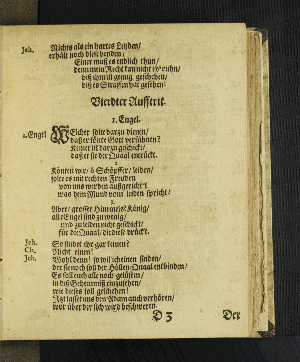 Jeh. Nichts als ein hartes Leyden/
erhält noch diese beyden:
Einer muß es endlich thun/
denn mein Recht kan nicht eh' ruhn/
biß ihm ist genug geschehen/
biß es Straffen hat gesehen.
Vierdter Aufftrit.
1. Engel.
1. Engel WElcher solte darzu dienen/
daß er könte Gott versühnen?
Keiner ist darzu geschickt/
daß er sie der Quaal entrückt.
2.
Könten wir/ ô Schöpffer/ leiden/
solte es mit rechten Freuden
von uns werden außgericht't
was dem Mund vom leiden spricht/
3.
Aber/ grosser Himmels König/
all' Engel sind zu wenig/
und zu leiden nicht geschickt/
für die Quaal/ die diese drückt.
Jeh. So findet ihr gar keinen?
Ch. Nicht einen!
Jeh. Wohl denn! so wil ich einen finden/
der sie noch soll der Höllen-Quaal entbinden/
Es soll euch alle noch gelüsten/
in diß Geheimniß einzusehen/
wie dieses soll geschehen!
Itzt lasset uns den Adam auch verhören/
wor über der sich wird beschweren.
D 3 Der